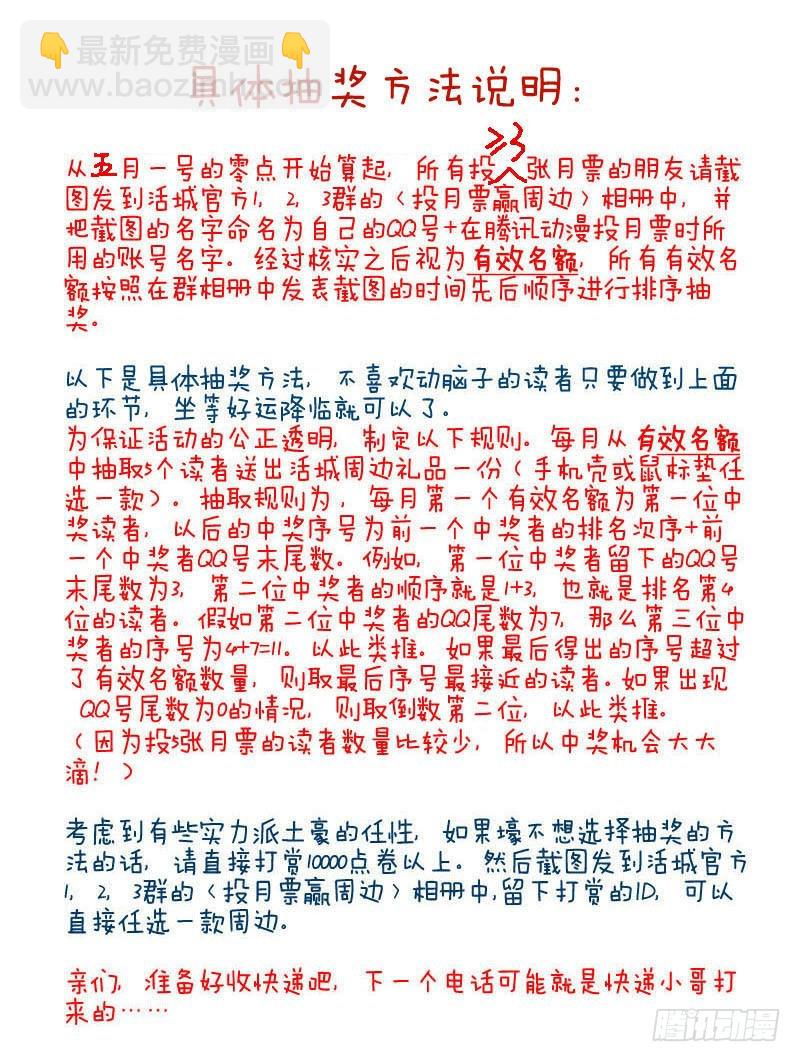 最新免费漫画
www.baozimh.com
具体抽奖方法说明:
≥3
从五月一号的零点开始算起, 所有投 张月票的朋友请截
图发到活城官方1, 2, 3群的〈投月票赢周边〉相册中, 并
把截图的名字命名为自己的QQ号+在腾讯动漫投月票时所
用的账号名字。经过核实之后视为有效名额, 所有有效名
额按照在群相册中发表截图的时间先后顺序进行排序抽
奖。
以下是具体抽奖方法, 不喜欢动脑子的读者只要做到上面
的环节, 坐等好运降临就可以了。
为保证活动的公正透明, 制定以下规则。每月从有效名额
中抽取5个读者送出活城周边礼品一份（手机壳或鼠标垫任
选一款）。抽取规则为, 每月第一个有效名额为第一位中
奖读者, 以后的中奖序号为前一个中奖者的排名次序+前
一个中奖者QQ号末尾数。例如, 第一位中奖者留下的QQ号
末尾数为3, 第二位中奖者的顺序就是1+3, 也就是排名第4
位的读者。假如第二位中奖者的QQ尾数为7, 那么第三位中
奖者的序号为4+7=11。以此类推。如果最后得出的序号超过
了有效名额数量, 则取最后序号最接近的读者。如果出现
QQ号尾数为0的情况, 则取倒数第二位, 以此类推。
（因为投5张月票的读者数量比较少, 所以中奖机会大大
滴!）
考虑到有些实力派土豪的任性, 如果壕不想选择抽奖的方
法的话, 请直接打赏10000点卷以上。然后截图发到活城官方
1, 2, 3群的〈投月票赢周边〉相册中,留下打赏的ID, 可以
直接任选一款周边。
亲们, 准备好收快递吧, 下一个电话可能就是快递小哥打
来的……
腾讯动漫